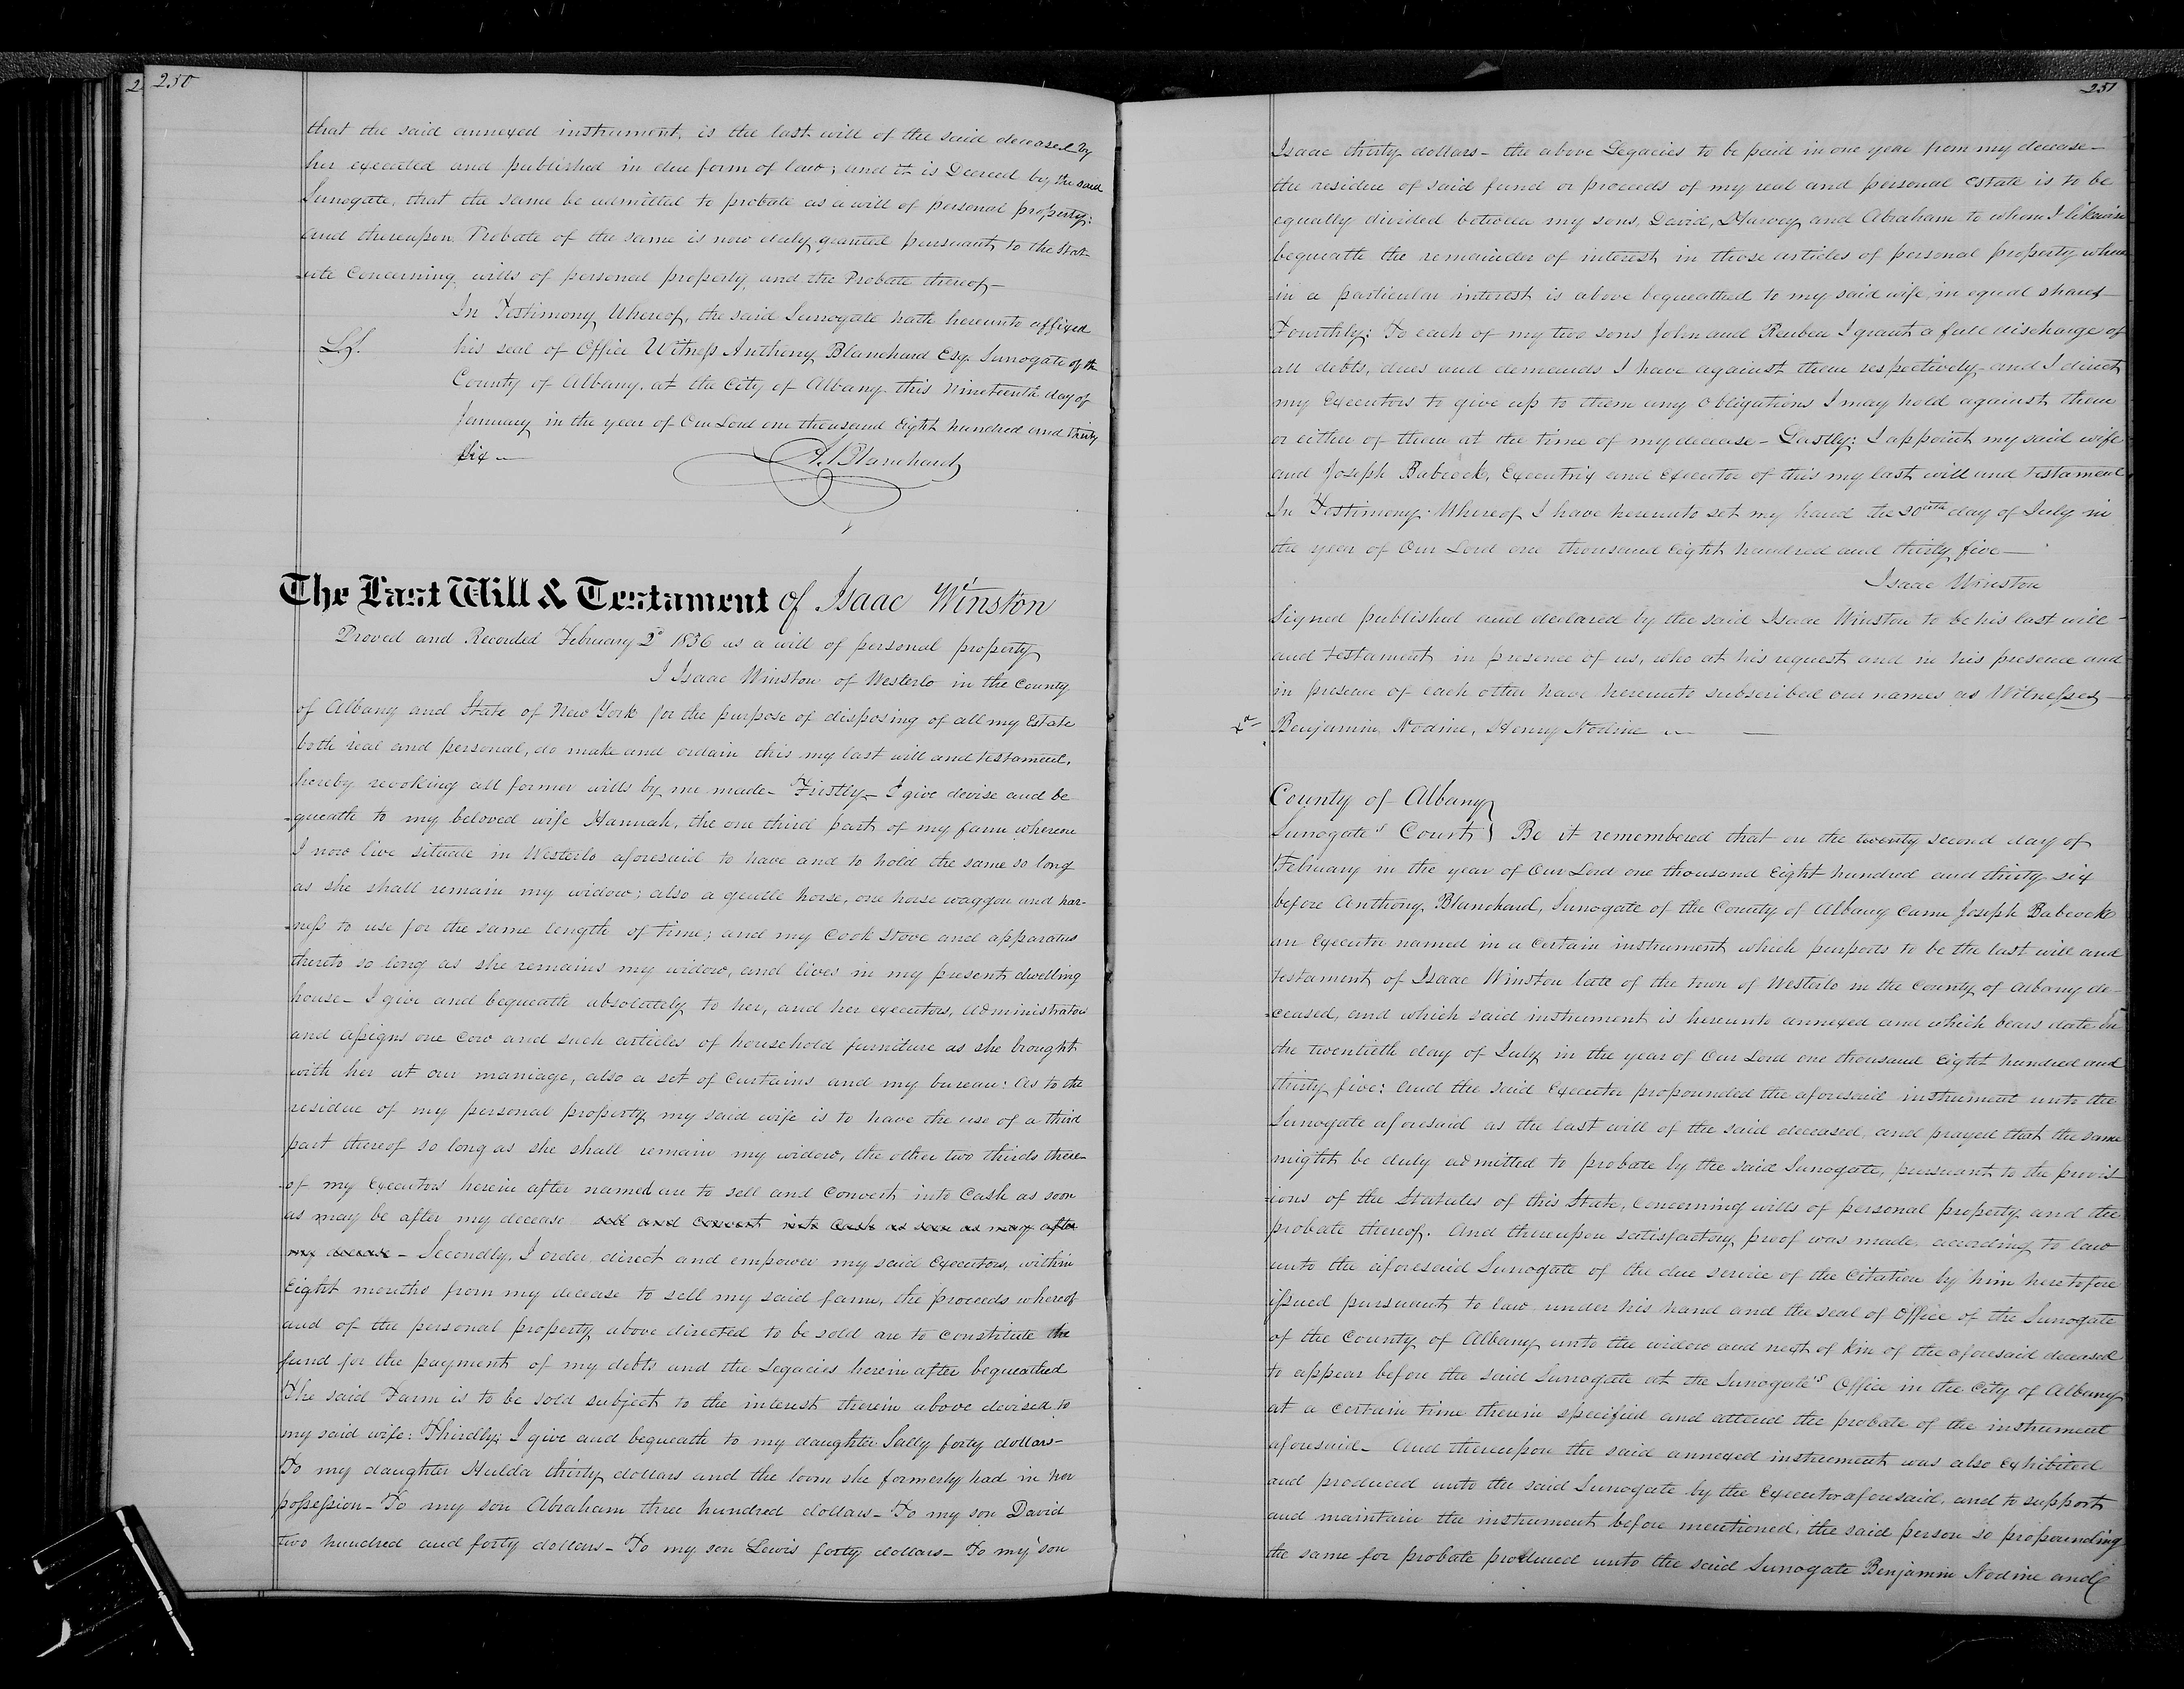 250
that the said annexed instrument, is the last will of the said deceased by
her executed and published in due form of law; and it is Decreed by the said
Surrogate, that the same be admitted to probate as a will of personal property:
and thereupon Probate of the same is now duly granted pursuant to the Stat-
-ute Concerning wills of personal property and the Probate thereof—
In Testimony Whereof, the said Surrogate hath hereunto affixed
L.S. his seal of Office Witness Anthony Blanchard Esq. Surrogate of the
County of Albany, at the City of Albany this Nineteenth day of
January in the year of Our Lord one thousand Eight hundred and thirty
Six —
A. Blanchard
The Last Will & Testament of Isaac Winston
Proved and Recorded February 2d 1836 as a will of personal property
I Isaac Winston of Westerlo in the County
of Albany and State of New York for the purpose of disposing of all my Estate
both real and personal, do make and ordain this my last will and testament,
hereby revoking all former wills by me made - Firstly - I give devise and be
-queath to my beloved wife Hannah, the one third part of my farm whereon
I now live situate in Westerlo aforesaid to have and to hold the same so long
as she shall remain my widow; also a gentle horse, one horse waggon and har-
-ness to use for the same length of time; and my Cook Stove and apparatus
thereto so long as she remains my widow, and lives in my present dwelling
house - I give and bequeath absolutely to her, and her executors, administrators
and assigns one Cow and such articles of household furniture as she brought
with her at our marriage, also a set of Curtains and my bureau: As to the
residue of my personal property my said wife is to have the use of a third
part thereof so long as she shall remain my widow, the other two thirds there-
-of my Executors herein after named are to sell and Convert into Cash as soon
as may be after my decease sell and convert into Cash as soon as may after
my decease - Secondly, I order direct and empower my said Executors, within
Eight months from my decease to sell my said farm, the proceeds whereof
and of the personal property above directed to be sold are to constitute the
fund for the payment of my debts and the Legacies herein after bequeathed
The said Farm is to be sold subject to the interest therein above devised to
my said wife: Thirdly; I give and bequeath to my daughter Sally forty dollars-
To my daughter Hulda thirty dollars and the loom she formerly had in her
possession - To my son Abraham three hundred dollars - To my son David
two hundred and forty dollars - To my son Lewis forty dollars - To my son
251
Isaac thirty dollars - the above Legacies to be paid in one year from my decease -
the residue of said fund or proceeds of my real and personal Estate is to be
equally divided between my sons, David, Harvey and Abraham to whom I likewise
bequeath the remainder of interest in those articles of personal property where
in a particular interest is above bequeathed to my said wife, in equal shares -
Fourthly; To each of my two sons John and Reuben I grant a full discharge of
all debts, dues and demands I have against them respectively - and I direct
my Executors to give up to them any Obligations I may hold against them
or either of them at the time of my decease - Lastly: I appoint my said wife
and Joseph Babcock, Executrix and Executor of this my last will and testament
In Testimony Whereof I have hereunto set my hand the day of July in
the year of Our Lord one thousand Eight hundred and thirty five —
Isaac Winston
Signed published and declared by the said Isaac Winston to be his last will
and testament in presence of us, who at his request and in his presence and
in presence of each other have hereunto subscribed our names as Witnesses —
Benjamin Nodine, Henry Nodine —
County of Albany
Surrogate's Court } Be it remembered that on the twenty second day of
February in the year of Our Lord one thousand Eight hundred and thirty six
before Anthony Blanchard, Surrogate of the County of Albany Came Joseph Babcock
an Executor named in a Certain instrument which purports to be the last will and
testament of Isaac Winston late of the town of Westerlo in the County of Albany de-
-ceased, and which said instrument is hereunto annexed and which bears date
the twentieth day of July in the year of Our Lord one thousand Eight hundred and
thirty five: and the said Executor propounded the aforesaid instrument unto the
Surrogate aforesaid as the last will of the said deceased, and prayed that the same
might be duly admitted to probate by the said Surrogate, pursuant to the provis
-ions of the Statutes of this State, Concerning wills of personal property and the
probate thereof. And thereupon satisfactory proof was made according to law
unto the aforesaid Surrogate of the due service of the Citation by him heretofore
issued pursuant to law under his hand and the seal of Office of the Surrogate
of the County of Albany unto the widow and next of kin of the aforesaid deceased
to appear before the said Surrogate at the Surrogate's Office in the City of Albany
at a Certain time therein specified and attend the probate of the instrument
aforesaid - And thereupon the said annexed instrument was also Exhibited
and produced unto the said Surrogate by the Executor aforesaid, and to support
and maintain the instrument before mentioned, the said person so propounding
the same for probate produced unto the said Surrogate Benjamin Nodine and